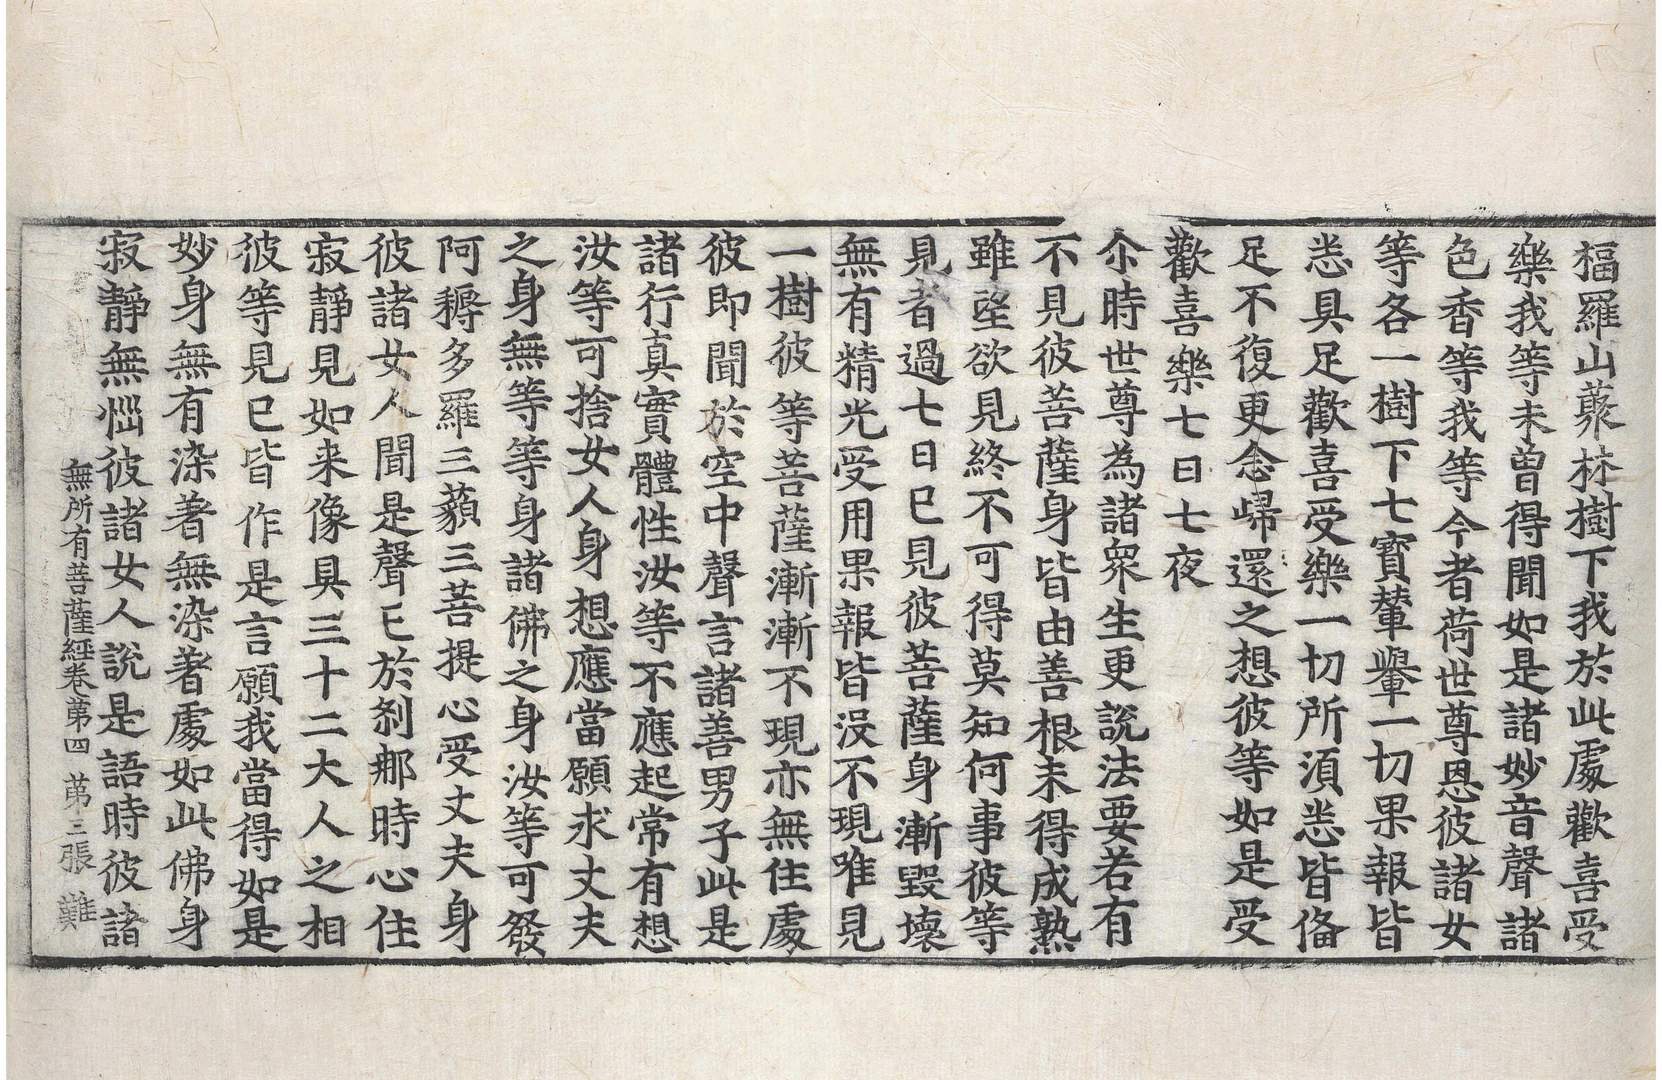 楅羅山藂林樹下我於此處歡喜受
樂我等未曾得聞如是諸妙音聲諸
色香等我等今者荷世尊恩彼諸女
等各一樹下七寶輦轝一切果報皆
悉具足歡喜受樂一切所須悉皆俻
足不復更念歸還之想彼等如是受
歡喜樂七日七夜
尒時世尊為諸衆生更說法要若有
不見彼菩薩身皆由善根未得成熟
雖望欲見終不可得莫知何事彼等
見者過七日已見彼菩薩身漸毀壞
無有精光受用果報皆沒不現唯見
一樹彼等菩薩漸漸不現亦無住處
彼即聞於空中聲言諸善男子此是
諸行真實體性汝等不應起常有想
汝等可捨女人身想應當願求丈夫
之身無等等身諸佛之身汝等可發
阿耨多羅三藐三菩提心受丈夫身
彼諸女人聞是聲已於剎那時心住
寂靜見如来像具三十二大人之相
彼等見已皆作是言願我當得如是
妙身無有染著無染著處如此佛身
寂靜無惱彼諸女人說是語時彼諸
無所有菩薩經卷苐四 苐三張 難